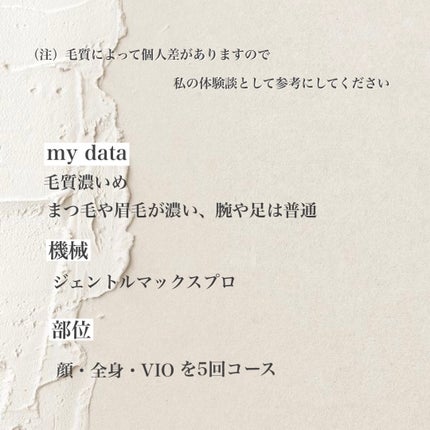 （注）毛質によって個人差がありますので
私の体験談として参考にしてください
my data
毛質濃いめ
まつ毛や眉毛が濃い、腕や足は普通
機械
ジェントルマックスプロ
部位
顔・全身・VIO を5回コース